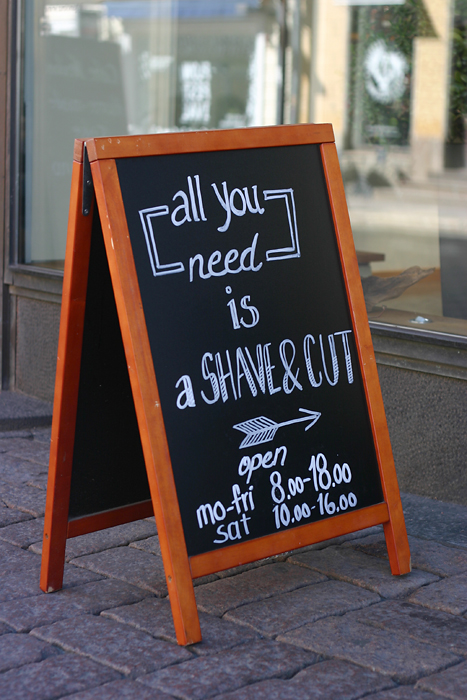 all you
need
is
a SHAVE & CUT
open
mo-fri 8.00-18.00
sat 10.00-16.00